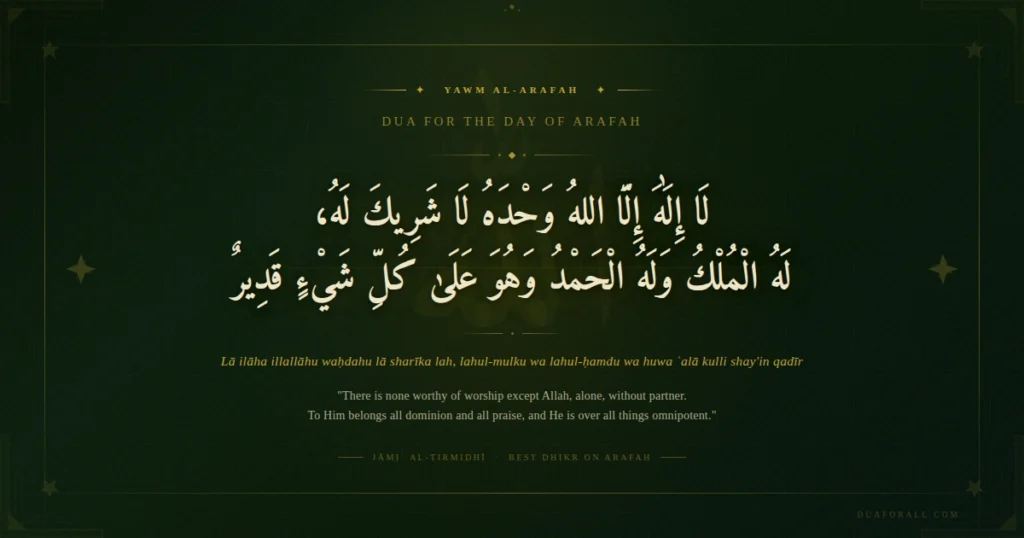 YAWM AL-ARAFAH
DUA FOR THE DAY OF ARAFAH
لَا إِلَٰهَ إِلَّا اللهُ وَحْدَهُ لَا شَرِيكَ لَهُ،
لَهُ الْمُلْكُ وَلَهُ الْحَمْدُ وَهُوَ عَلَىٰ كُلِّ شَيْءٍ قَدِيرٌ
Lā ilāha illallāhu waḥdahu lā sharīka lah, lahul-mulku wa lahul-ḥamdu wa huwa ʿalā kulli shay'in qadīr
"There is none worthy of worship except Allah, alone, without partner.
To Him belongs all dominion and all praise, and He is over all things omnipotent."
JĀMIʿ AL-TIRMIDHĪ · BEST DHIKR ON ARAFAH
DUAFORALL.COM